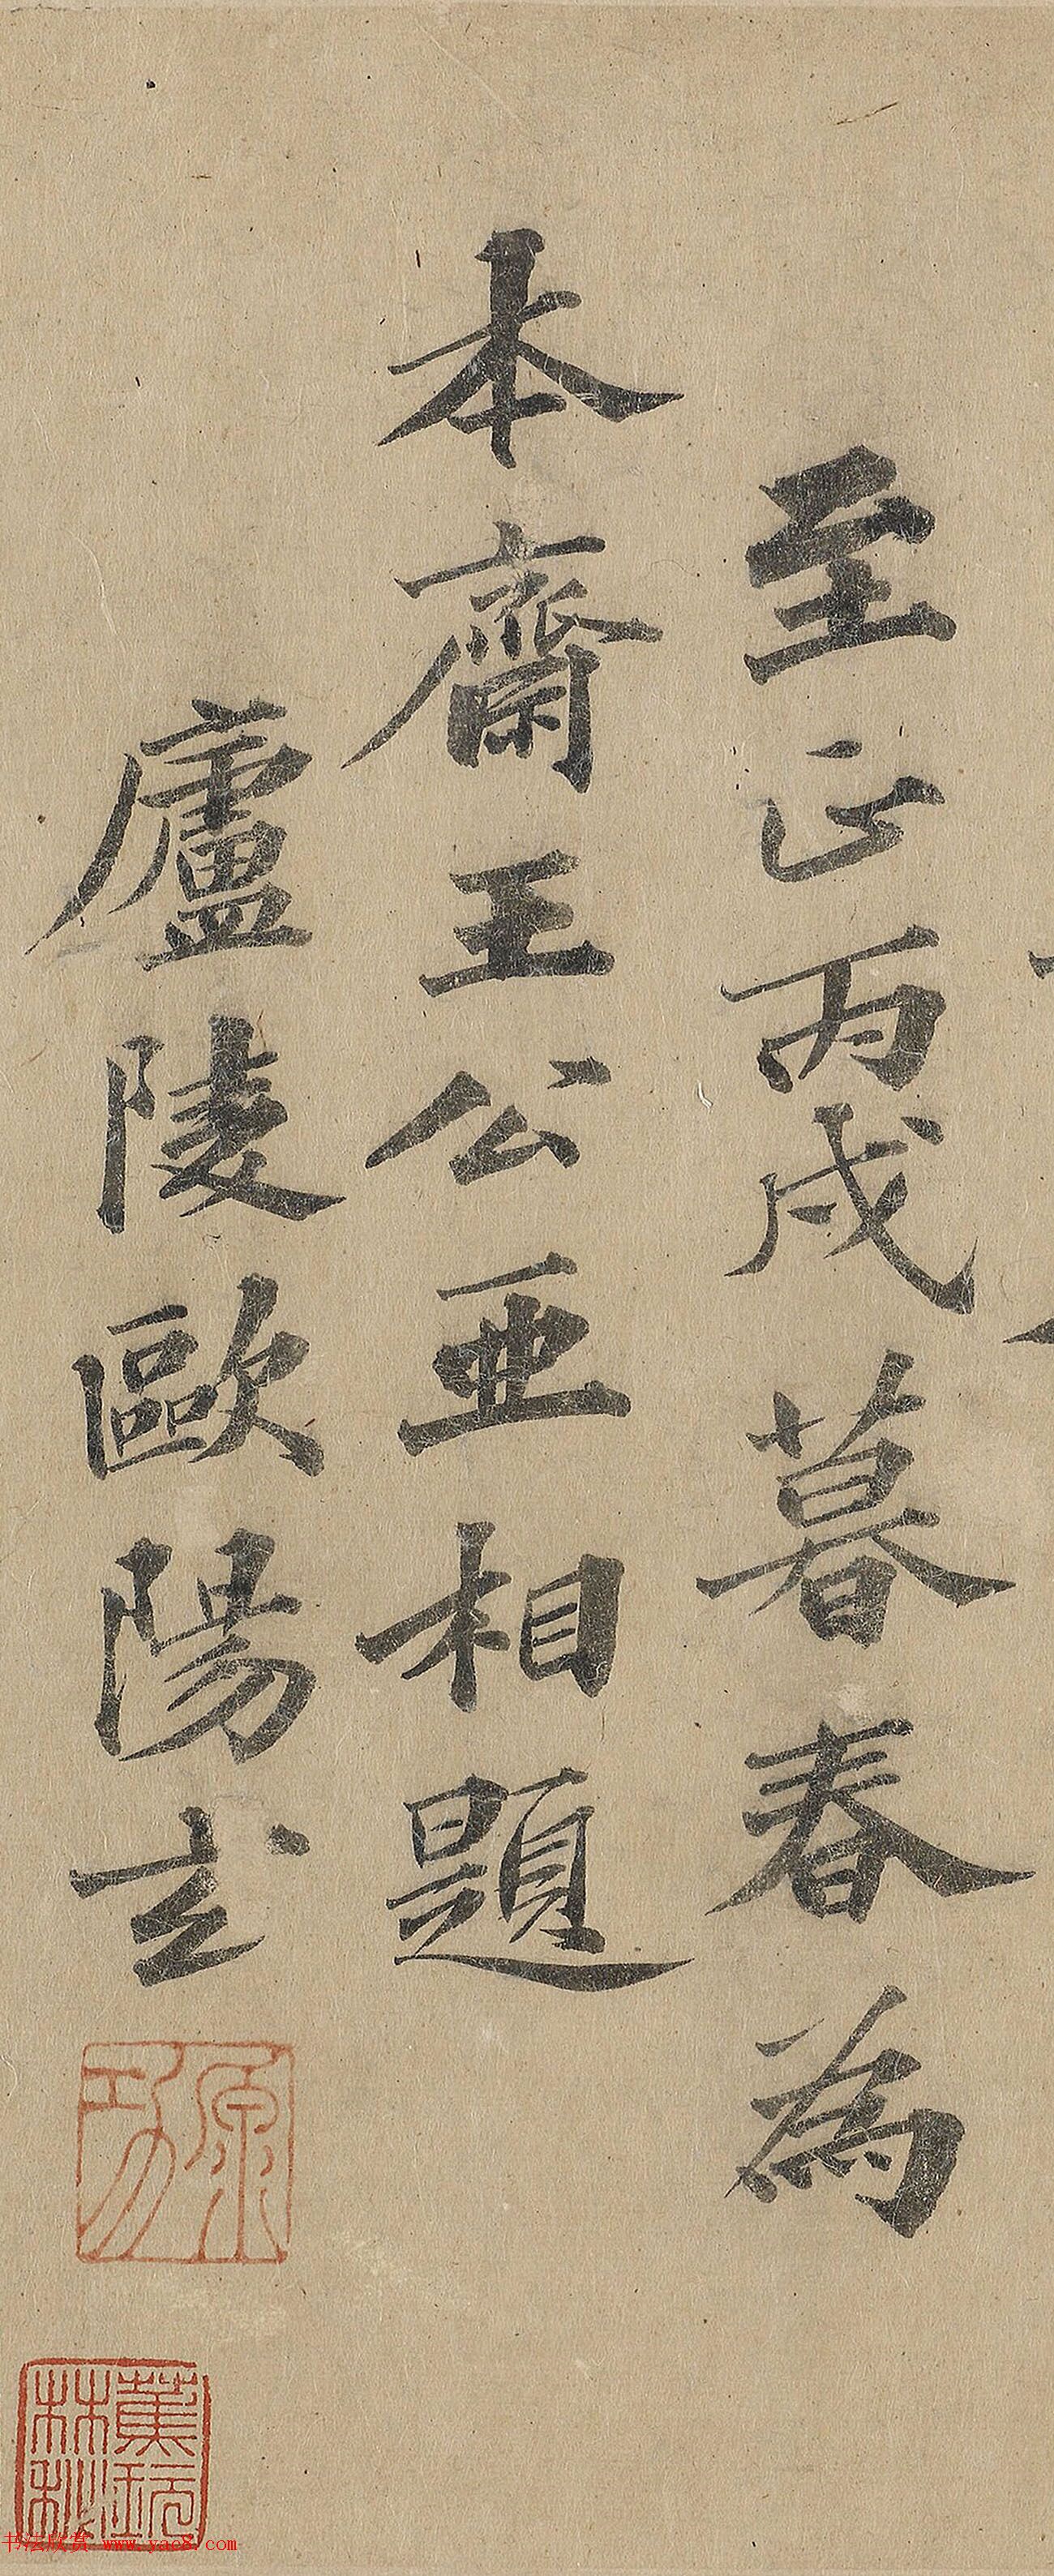 至正丙戌暮春為
本齋王公亞相題
廬陵歐陽玄
原功
书法欣赏 www.yac8.com